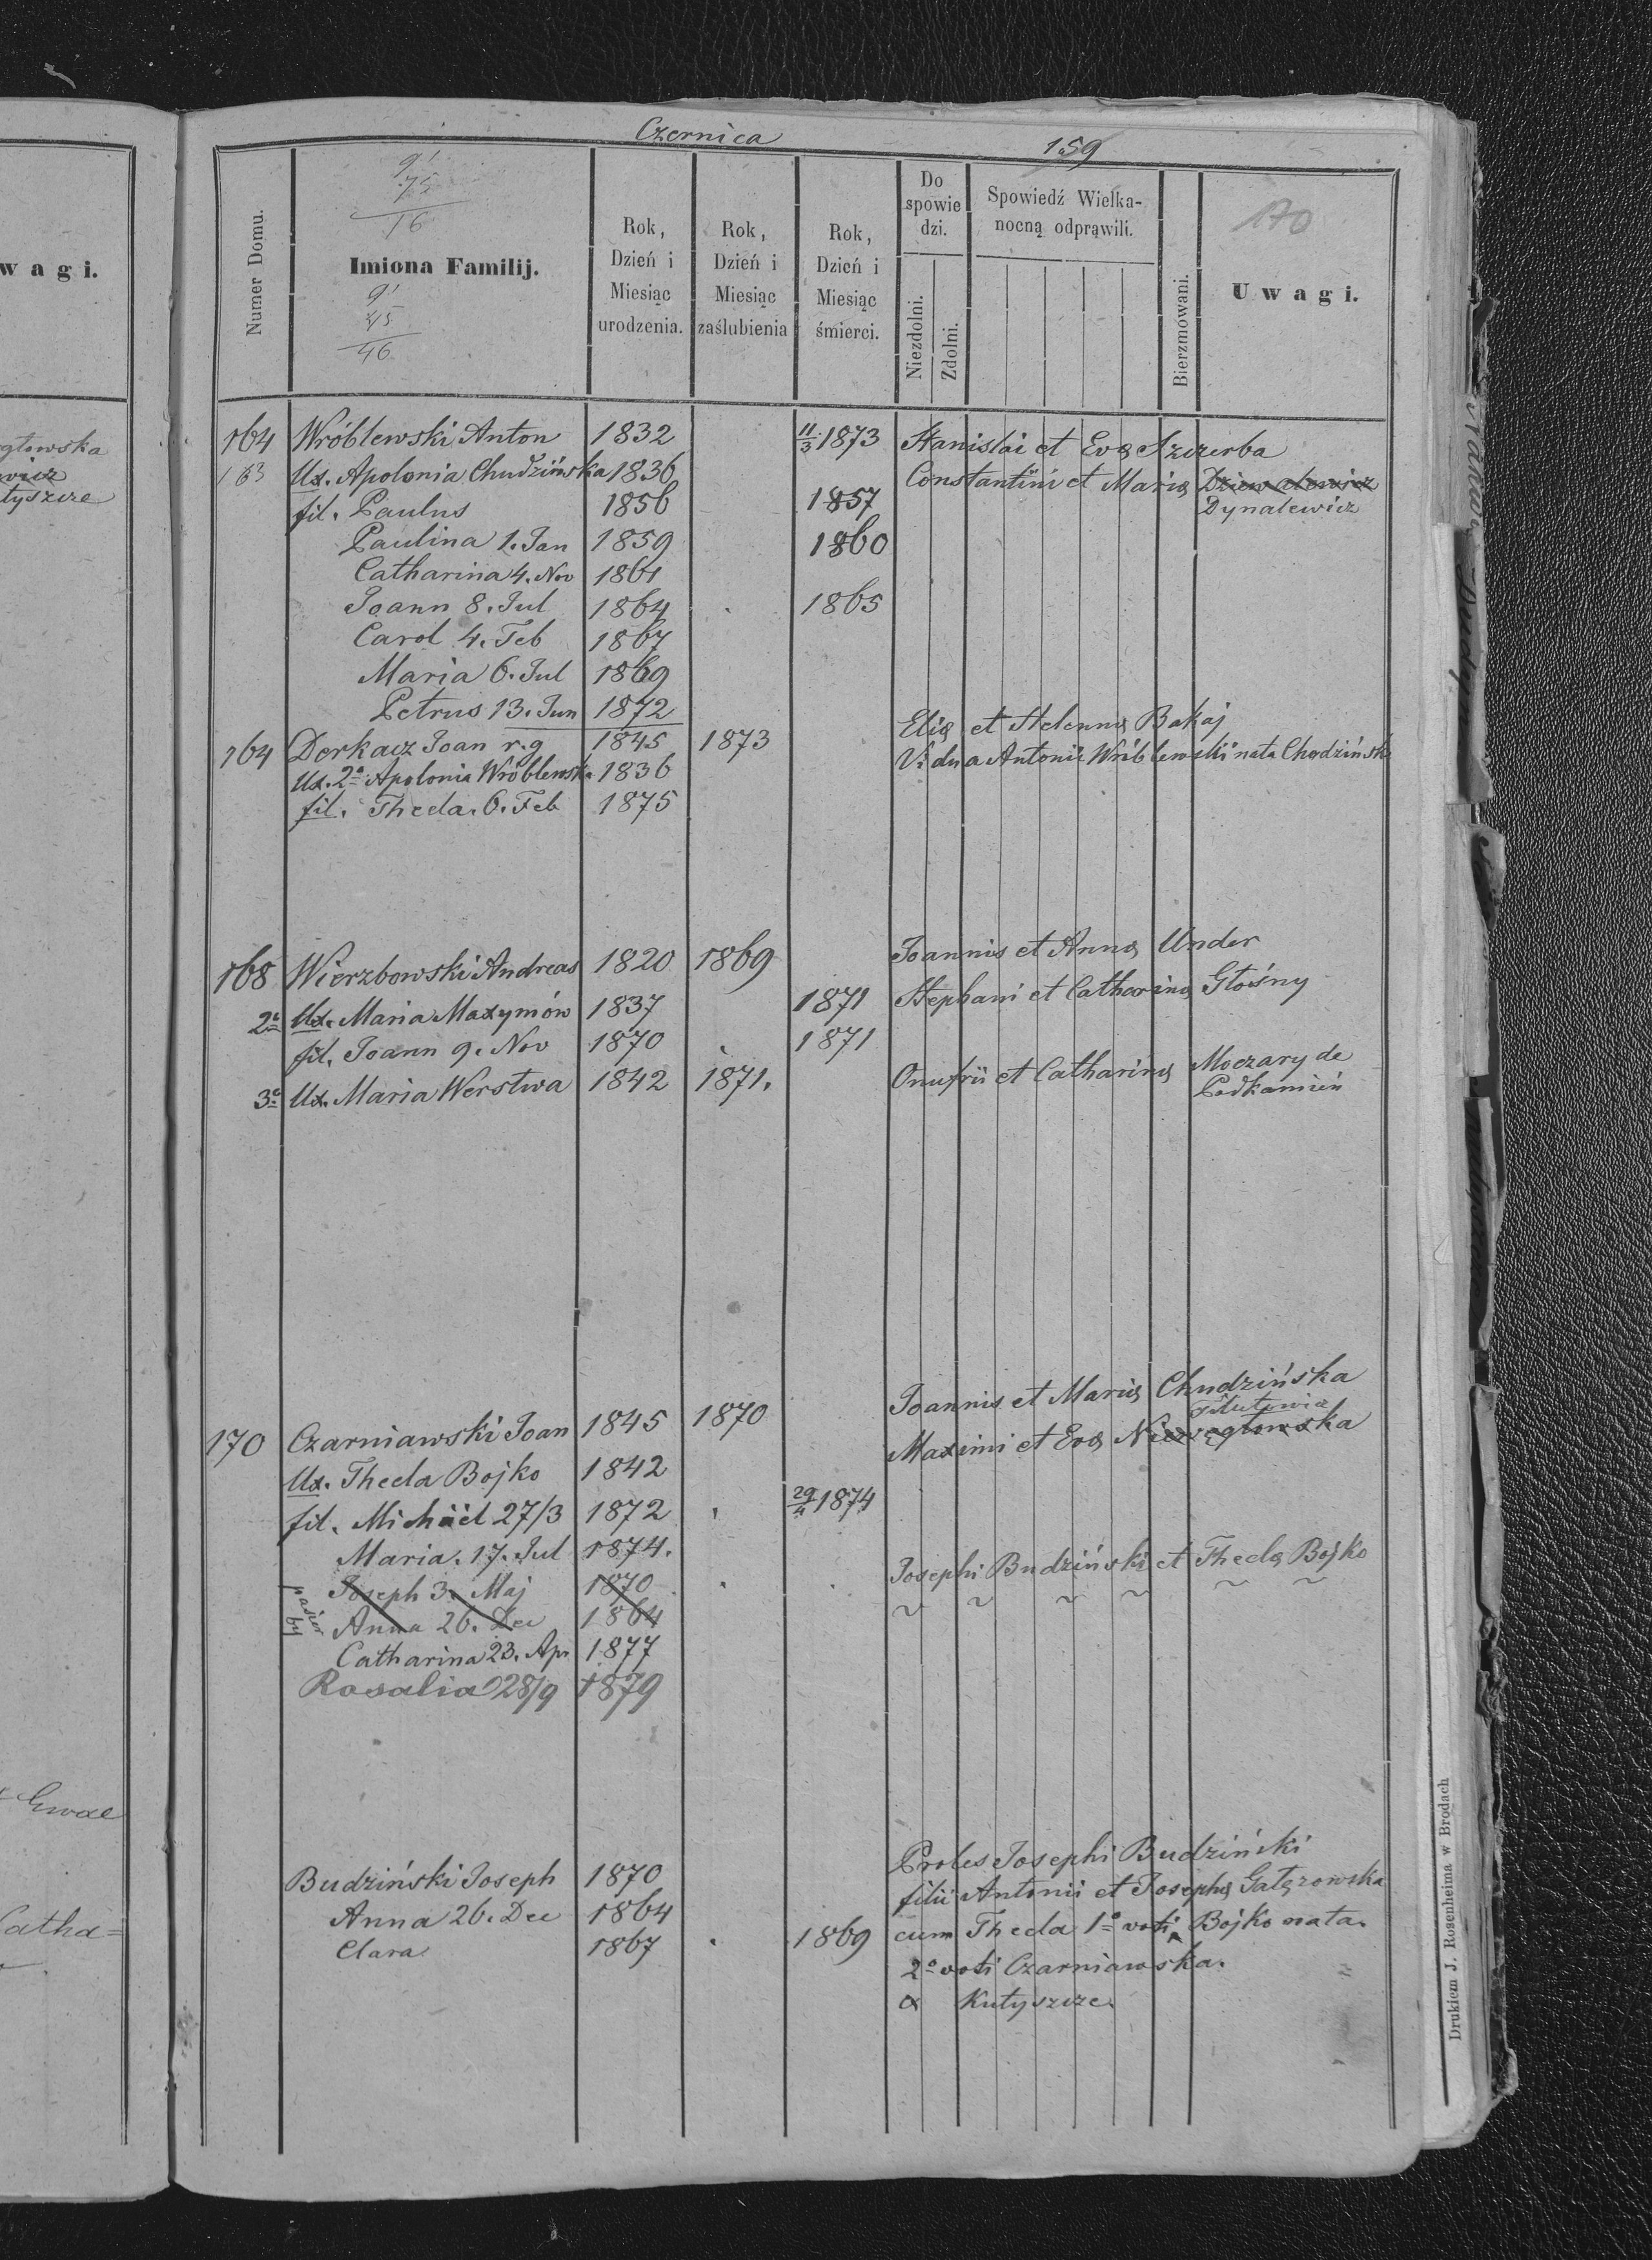 Czernica
159
Numer Domu.
Imiona Familij.
Rok, Dzień i Miesiąc urodzenia.
Rok, Dzień i Miesiąc zaślubienia
Rok, Dzień i Miesiąc śmierci.
Do spowiedzi.
Niezdolni.
Zdolni.
Spowiedź Wielkanocną odprąwili.
Bierzmowani.
Uwagi.
170
91
75
16
91
45
46
164 Wróblewski Anton 1832 11/3 1873 Stanislai et Evæ Szczerba
163 Ux. Apolonia Chudzińska 1836 Constantini et Mariæ
Dynalewicz
fil. Paulus 1856 1857
Paulina 1. Jan 1859 1860
Catharina 4. Nov 1861
Joann 8. Jul 1864 1865
Carol 4. Feb 1867
Maria 6. Jul 1869
Petrus 13. Jun 1872
164 Derkacz Joan r.g 1845 1873 Eliæ et Helennæ Bakaj
Ux. 2a Apolonia Wróblewska 1836 Vidua Antonii Wróblewski nata Chodzińsk
fil. Thecla. 6. Feb 1875
168 Wierzbowski Andreas 1820 1869 Joannis et Annæ Under
2a Ux. Maria Maxymów 1837 1871 Stephani et Catharinæ Głośny
fil. Joann 9. Nov 1870 1871
3a Ux. Maria Werstwa 1842 1871. Onufrii et Catharinæ Moczary de
Podkamień
170 Czarniawski Joan 1845 1870 Joannis et Mariæ Chudzińska
Ux. Thecla Bojko 1842 Maximi et Evæ
fil. Michäel 27/3 1872 29/4 1874
Maria. 17. Jul 1874.
pasier
by
Joseph 3. Maj 1870 Josephi Budziński et Theclæ Bojko
Anna 26. Dec 1864 ~ ~ ~ ~ ~ ~
Catharina 23. Apr 1877
Rosalia 28/9 1879
Budziński Joseph 1870 Proles Josephi Budziński
Anna 26. Dec 1864 filii Antonii et Josephæ Gałęzowska
Clara 1867 1869 cum Thecla 1o voti Bojko nata.
2o voti Czarniawska.
a Kutyszcze.
Drukiem J. Rosenheima w Brodach
wagi.
głowska
tyszcze
Ewae
Catha=